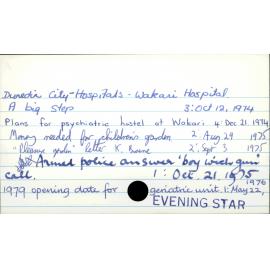 Dunedin City-Hospitals - Wakari Hospital
A big step 3: Oct 12, 1974
Plans for psychiatric hostel at Wakari 4: Dec 21. 1974
Money needed for children's garden 2 Aug 29 1975
"Pleasure garden" letter K. 2: Sept 3 1975
Armed police answer 'boy with gun'
call. 1: Oct. 21, 1975
1979 opening date for geriatric unit. 1: May 22, 1976
EVENING STAR